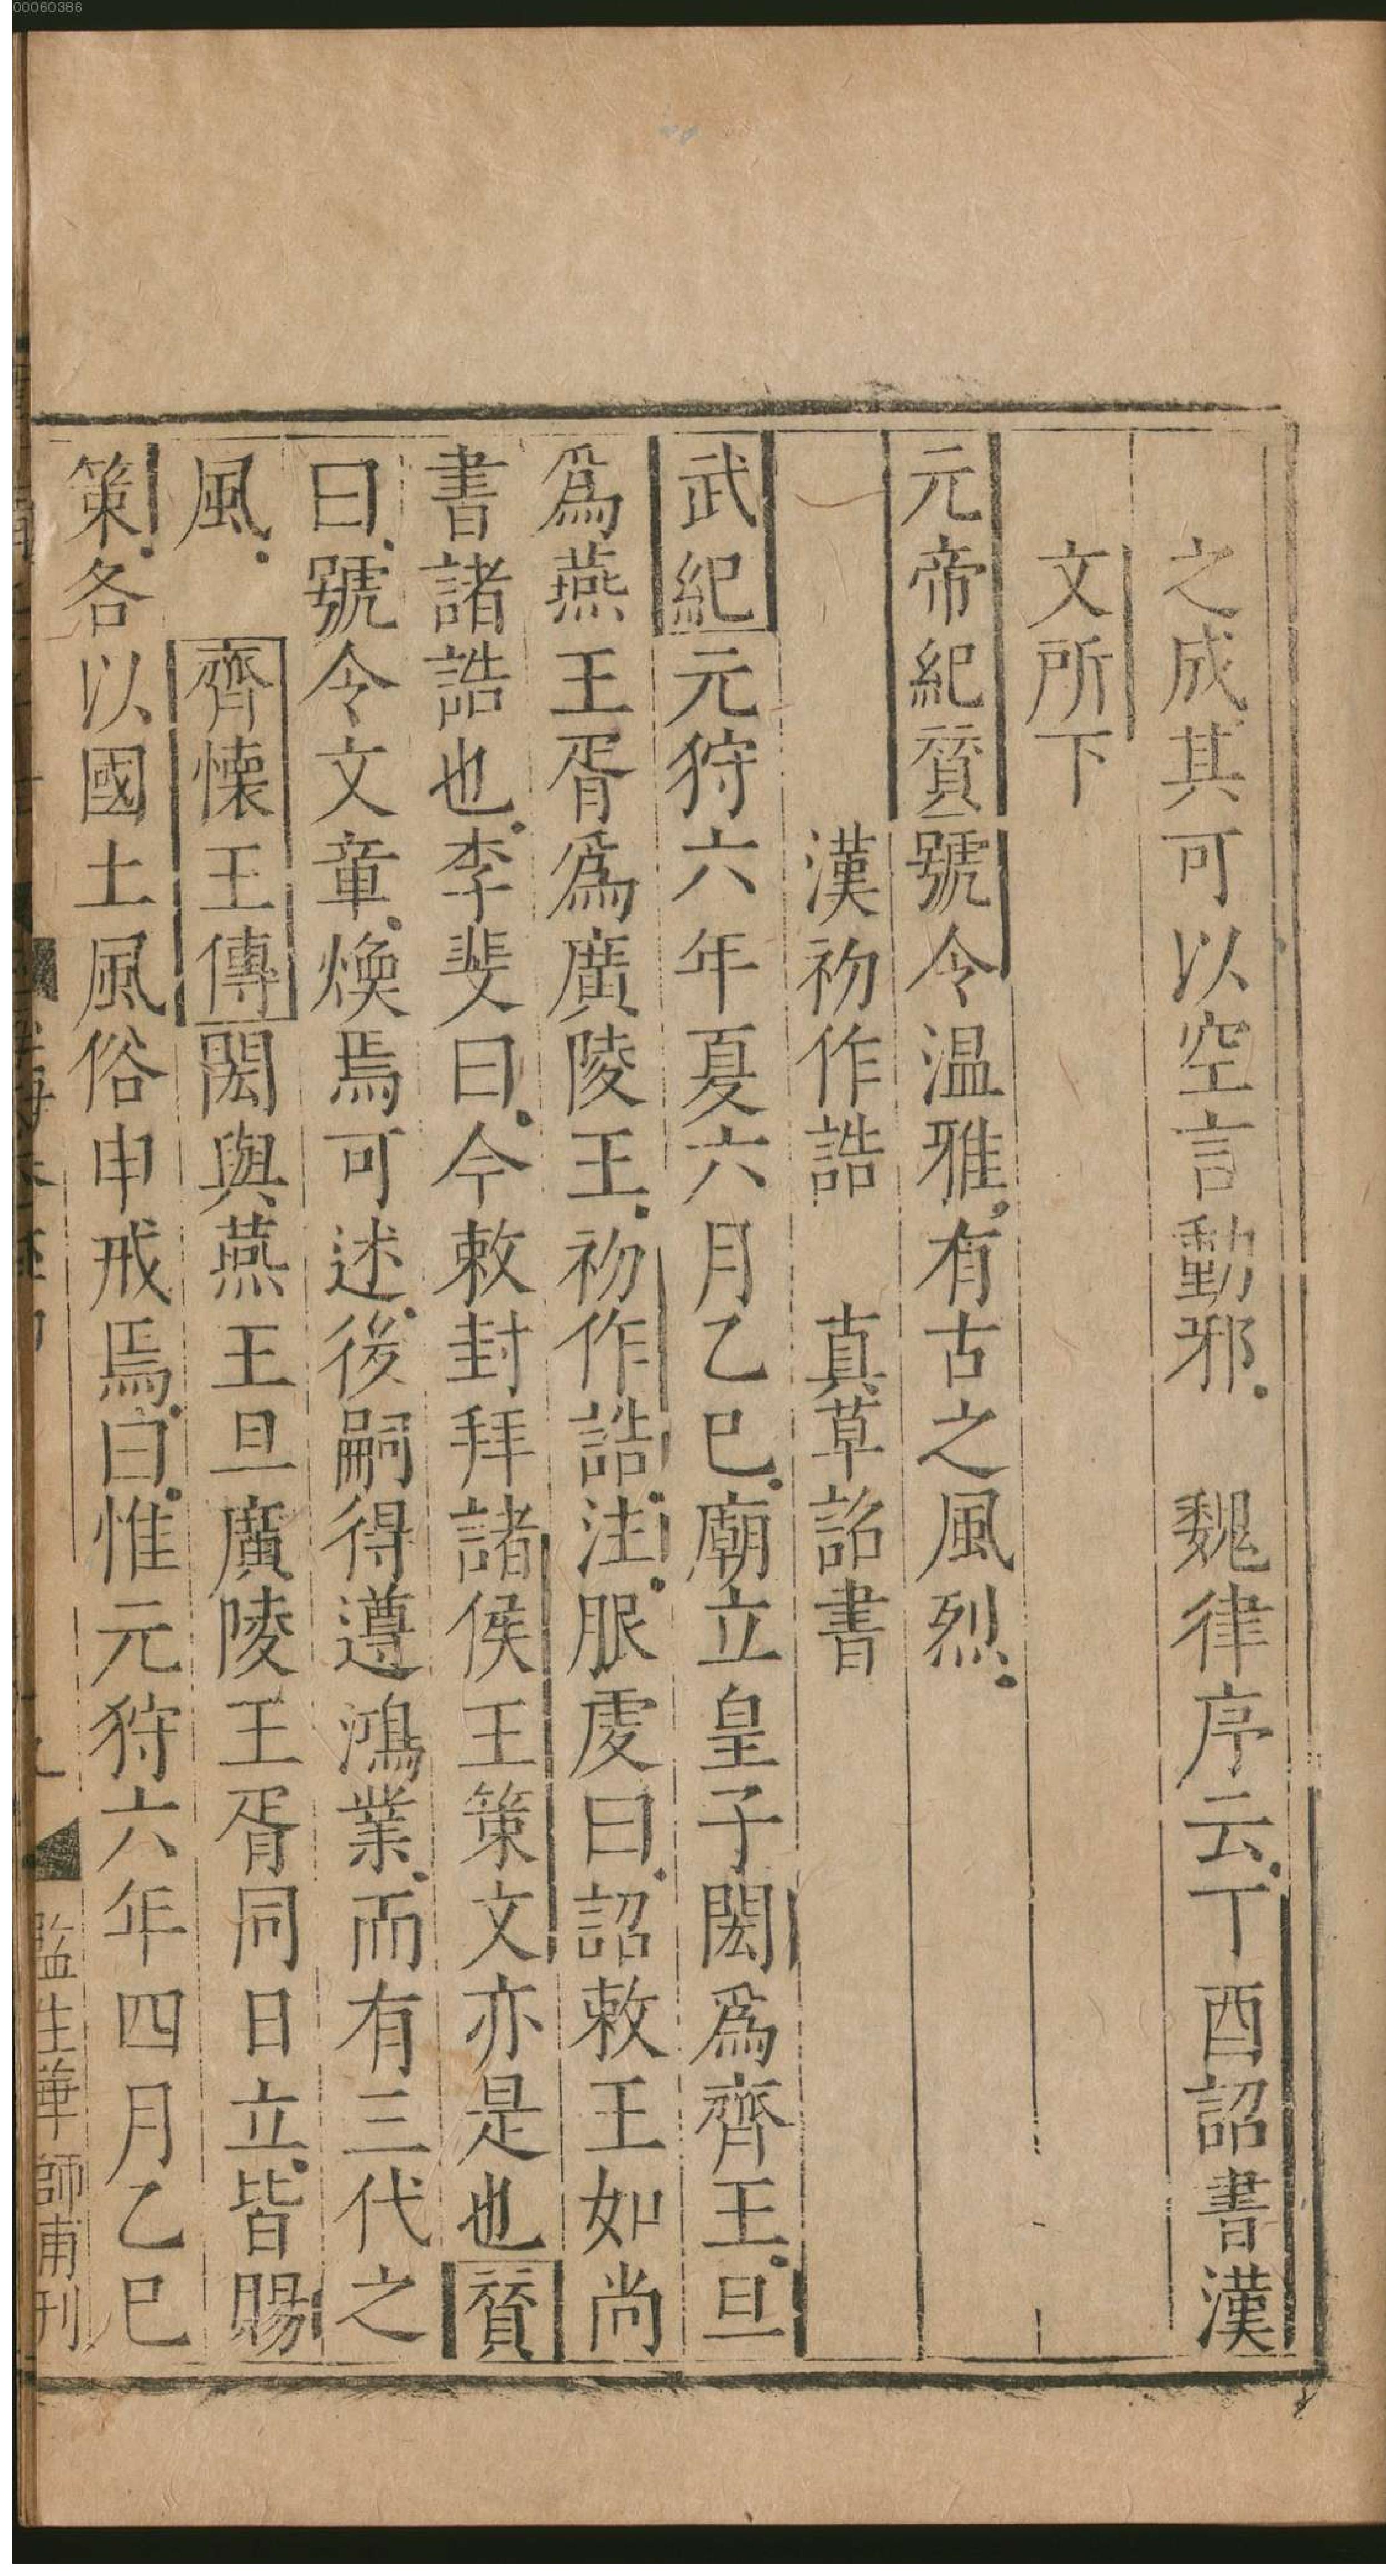 00060386
之成其可以空言動邪　魏律序云丁酉詔書漢
文所下
元帝紀贊號令温雅有古之風烈
漢初作誥　真草詔書
武紀元狩六年夏六月乙巳廟立皇子閎爲齊王旦
爲燕王胥爲廣陵王初作誥注服虔曰詔敕王如尚
書諸誥也李斐曰今敕封拜諸侯王策文亦是也贊
曰號令文章煥焉可述後嗣得遵鴻業而有三代之
風　齊懐王傳閎與燕王旦廣陵王胥同日立皆賜
策各以國土風俗申戒焉曰惟元狩六年四月乙巳
監生華師甫刊